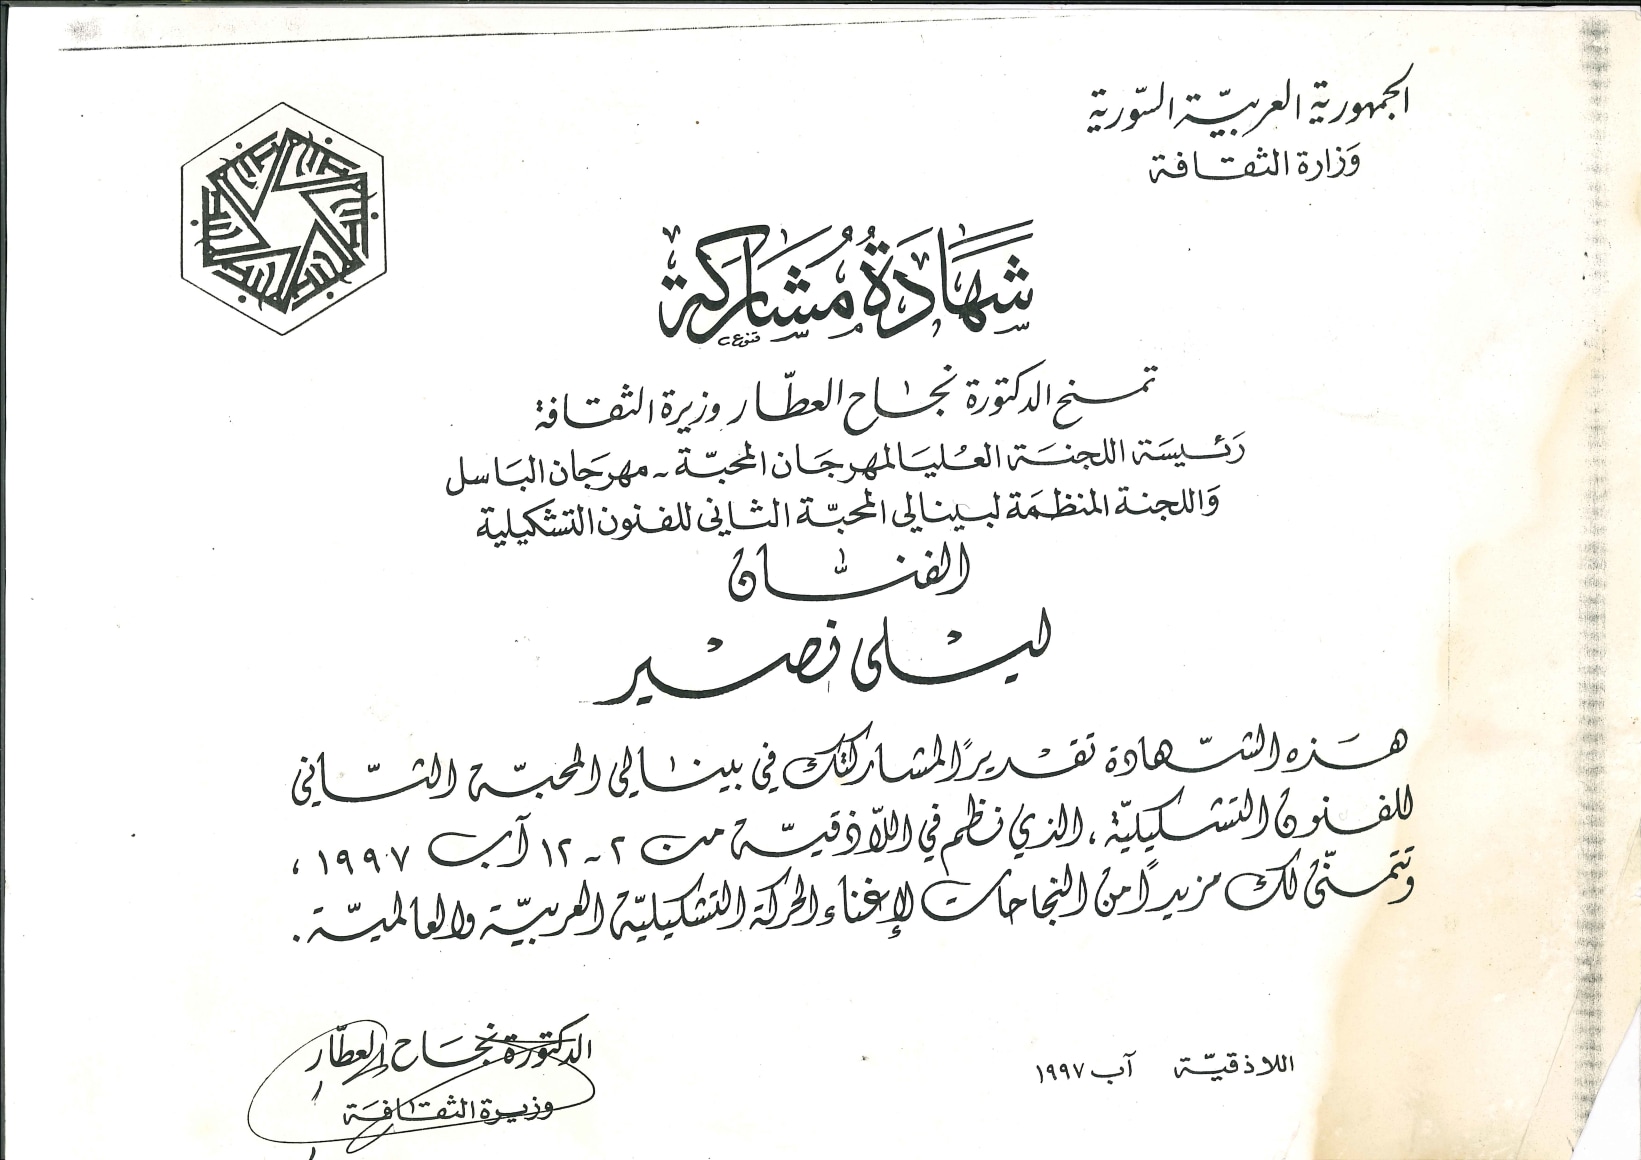 الجمهورية العربيّة السّورية
وَزارة الثقافة
شَهَادَةُ مُشَارَكَة
تمنح الدكتورة نجاح العطّار وزيرة الثقافة
رَئيسَة اللجنَة العُليَا لمهرجَان المحبّة - مهرجَان البَاسل
وَاللجنة المنظمَة لبينالي المحبّة الثاني للفنون التشكيلية
الفنّان
ليْلى نصْير
هَذه الشّهادة تقْديرًا لمشاركتك في بينالي المحبّة الثّاني
للفنون التشكيليّة ، الذي نظم في اللّاذقيّة من ٢ - ١٢ آب ١٩٩٧ ،
وتتمنّى لك مزيدًا من النجاحات لإغناء الحركة التشكيليّة العربيّة والعالميّة .
الدكتورة نجَاح العطّار
وزيرة الثقافَة
اللاذقيّة آب ١٩٩٧